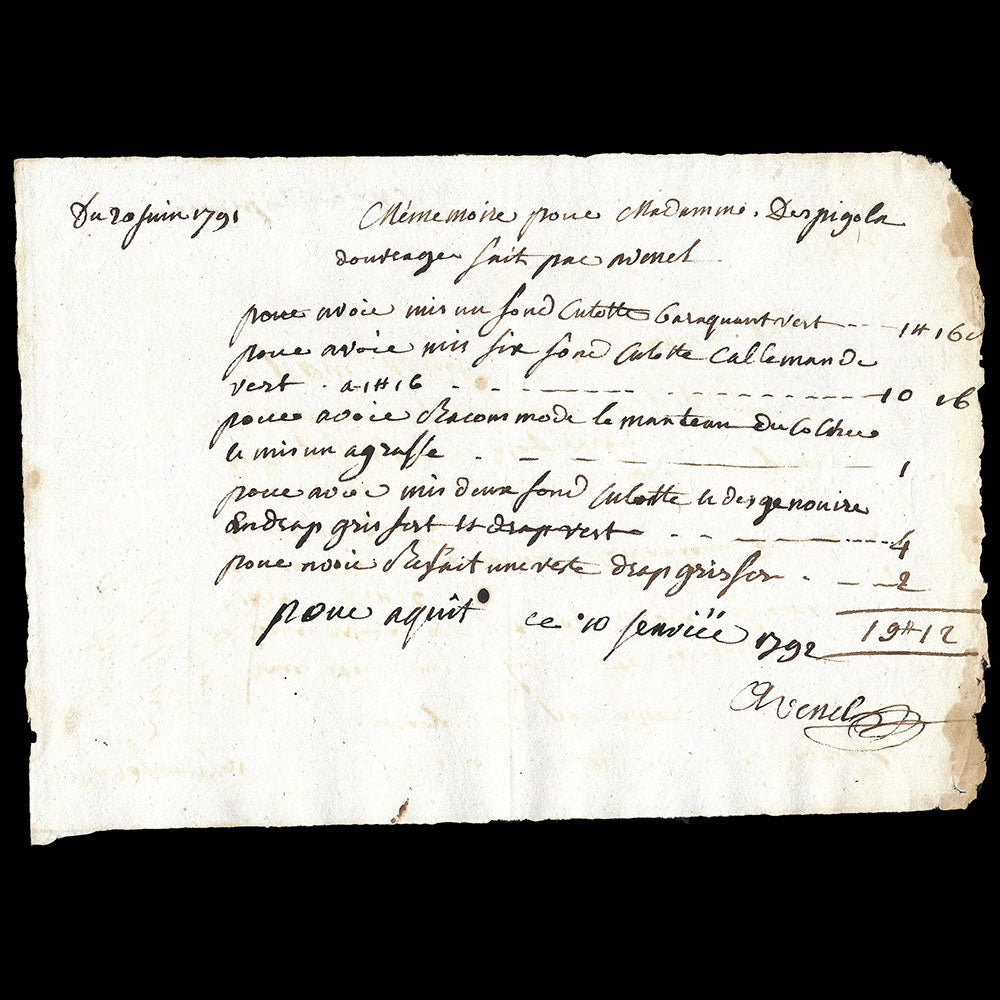 Du 20 Juin 1791
Mémemoire pour Madamme Despigola
douvrage fait par avenel
pour avoir mis un fond Culotte baraquant vert 1# 16
pour avoir mis six fond Culotte Callemande
vert a 1#16 10 16
pour avoir Racommode le manteau du
le mis un agraffe 1
pour avoir mis deux fond Culotte et des genouire
En drap gris fert et drap vert 4
pour avoir Refait une veste drap gris fer 2
19# 12
pour aquit ce 10 Jenvïer 1792
Avenel